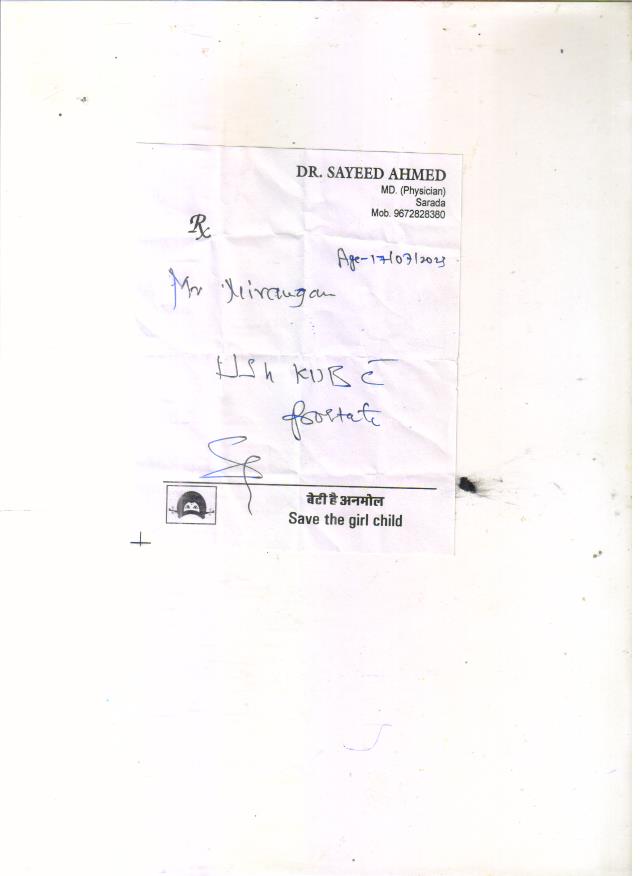 DR. SAYEED AHMED
MD. (Physician)
Sarada
Mob. 9672828380
Rx
Age-17/07/2023
Mr
USh KUB c̄
prostate
बेटी है अनमोल
Save the girl child